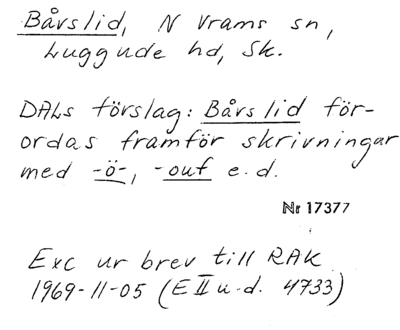 Båvslid, N Vrams sn,
Luggude hd, Sk.
DALs förslag: Båvslid för-
ordas framför skrivningar
med -ö-, -ouf e.d.
Nr 17377
Exc ur brev till RAK
1969-11-05 (E II u.d. 4733)